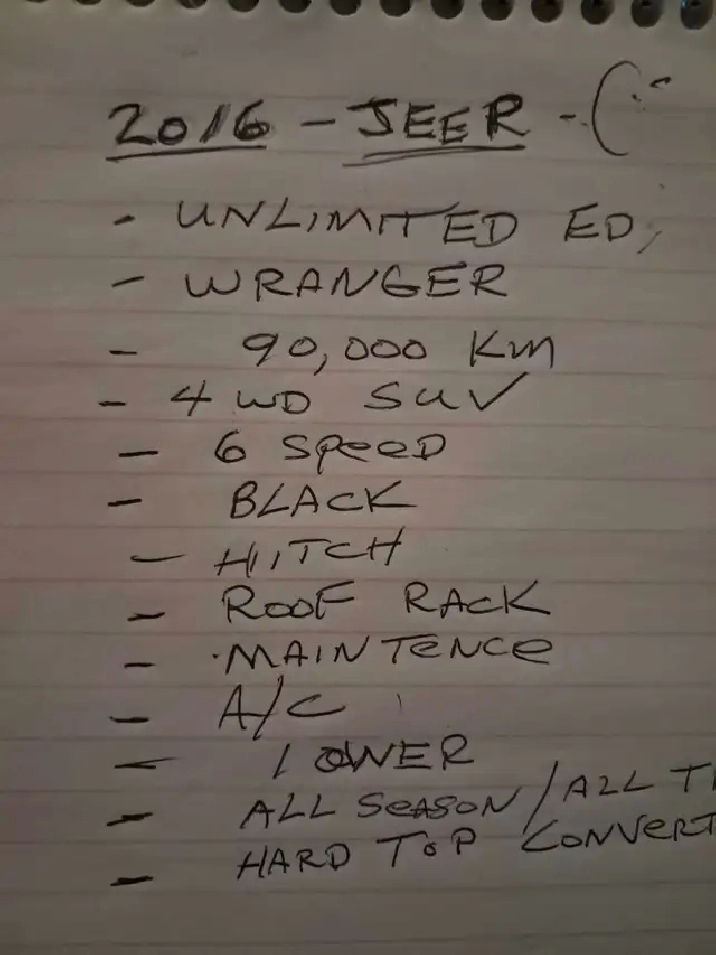 2016 - JEEP - (
- UNLIMITED ED,
- WRANGER
- 90,000 Km
- 4 WD SUV
- 6 SPeeD
- BLACK
- HITCH
- ROOF RACK
- ·MAINTENCE
- A/C
- 1 OWNER
- ALL SEASON / ALL T
- HARD TOP CONVERT